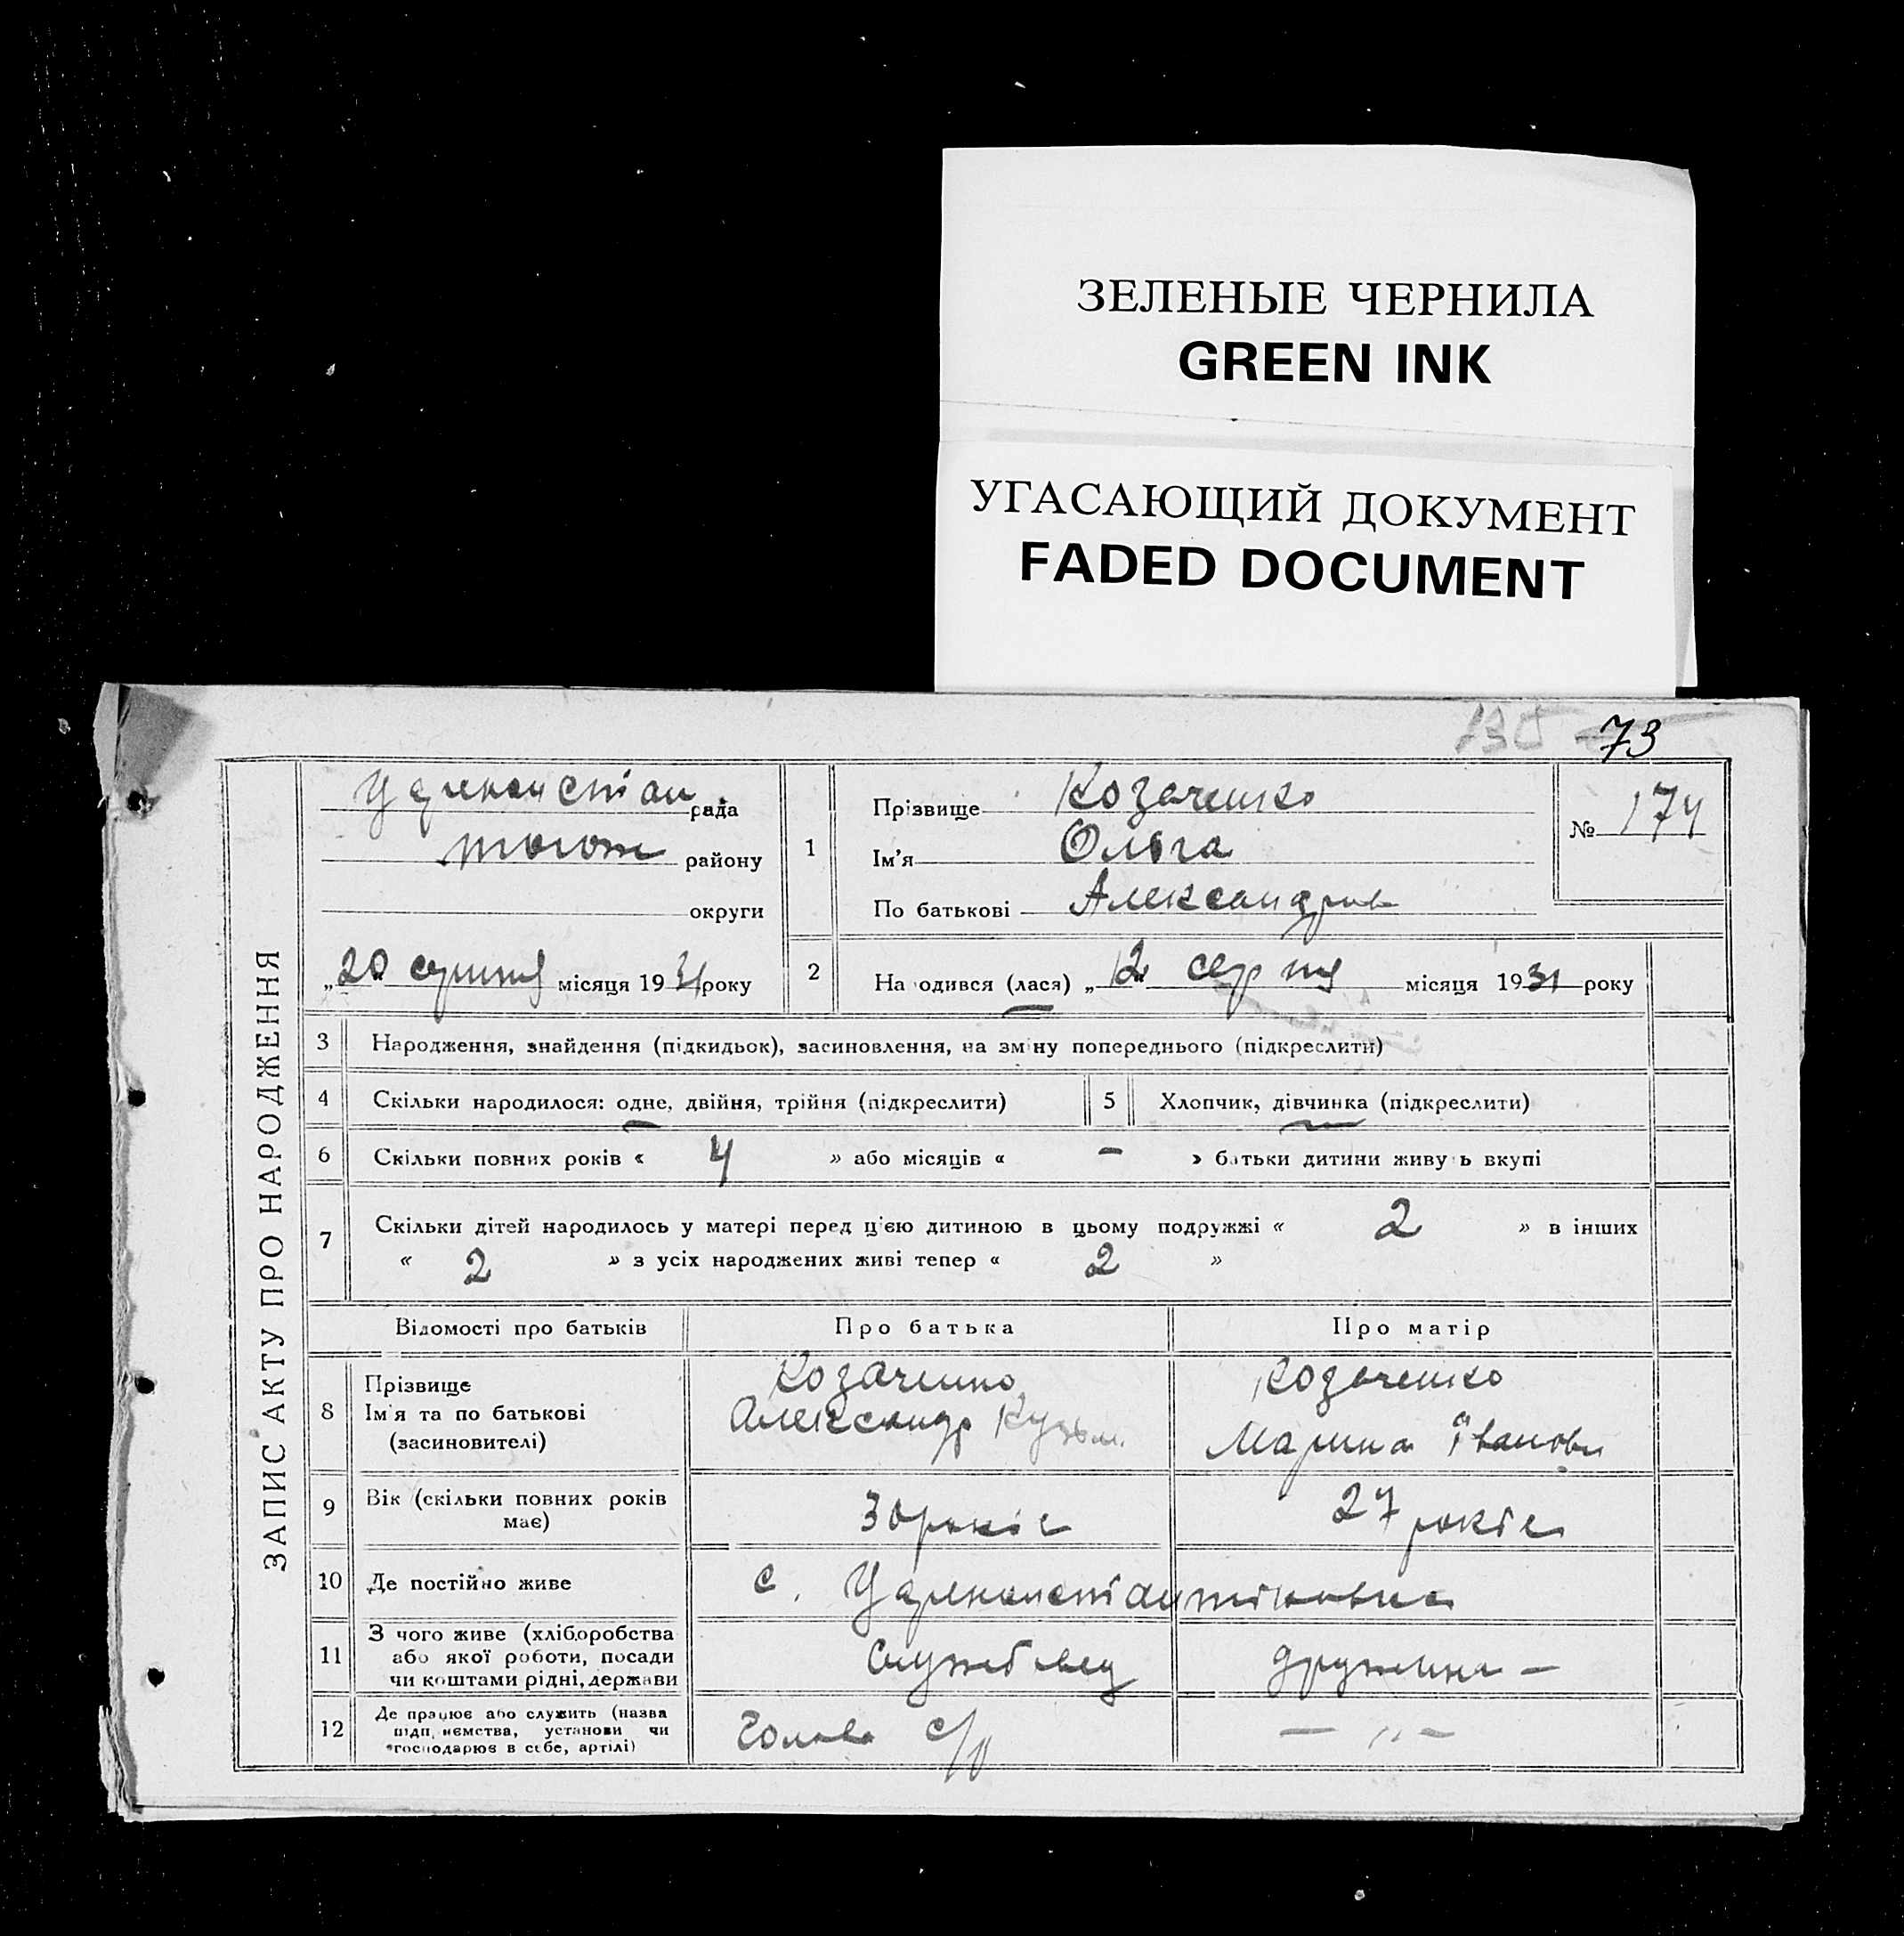 ЗЕЛЕНЫЕ ЧЕРНИЛА
GREEN INK
УГАСАЮЩИЙ ДОКУМЕНТ
FADED DOCUMENT
73
ЗАПИС АКТУ ПРО НАРОДЖЕННЯ
рада
району
округи
„20 серпня місяця 1931 року
1
Прізвище Козаченко
Ім’я Ольга
По батькові Александрів
№ 174
2
Народився (лася) „12 серпня місяця 1931 року
3 Народження, знайдення (підкидьок), засиновлення, на зміну попереднього (підкреслити)
4 Скільки народилося: одне, двійня, трійня (підкреслити)
5 Хлопчик, дівчинка (підкреслити)
6 Скільки повних років « 4 » або місяців « – » батьки дитини живуть вкупі
7 Скільки дітей народилось у матері перед ц’єю дитиною в цьому подружжі « 2 » в інших
« 2 » з усіх народжених живі тепер « 2 »
Відомості про батьків
Про батька
Про матір
8
Прізвище
Ім’я та по батькові
(засновителі)
Козаченко
Александр Кузьм.
Козаченко
Марина Івановн
9
Вік (скільки повних років
має)
30 років
27 років
10 Де постійно живе
с.
11
З чого живе (хліборобства
або якої роботи, посади
чи коштами рідні, держави
Службовец
дружина –
12
Де працює або служить (назва
підприємства, установи чи
господарює в себе, артілі)
Голова с/р
– „ –